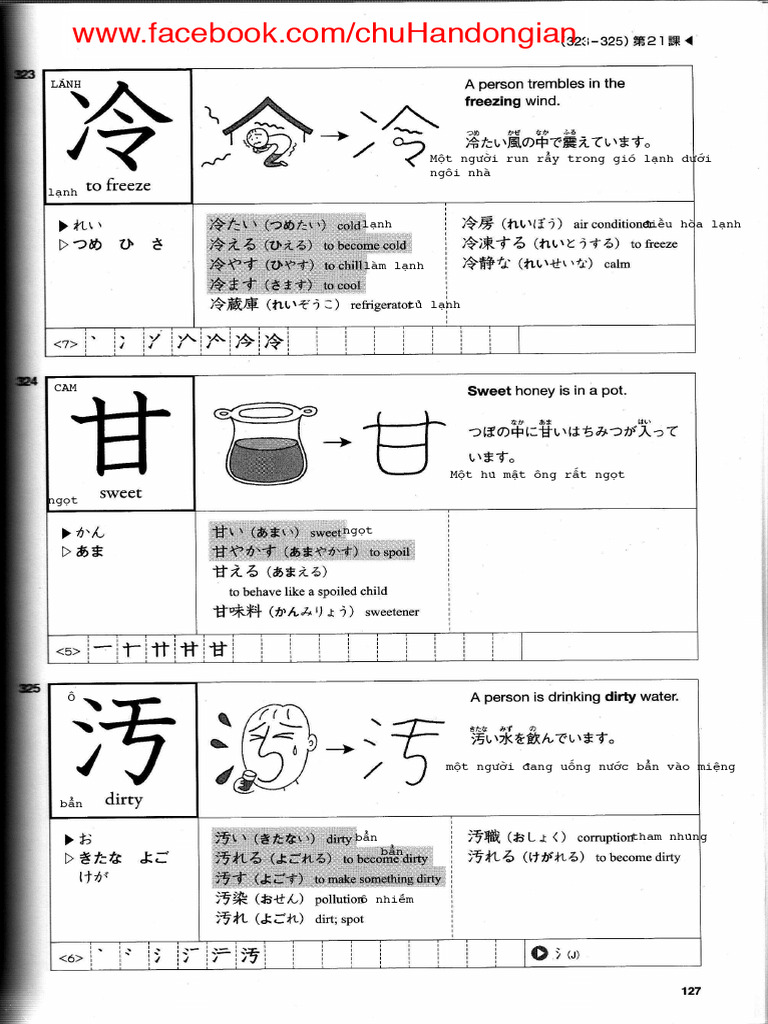 www.facebook.com/chuHandongian
(323-325) 第21課 ◀
323
LÃNH
冷
lạnh to freeze
A person trembles in the
freezing wind.
つめ かぜ なか ふる
冷たい風の中で震えています。
Một người run rẩy trong gió lạnh dưới
ngôi nhà
▶れい
▷つめ ひ さ
冷たい（つめたい） cold lạnh
冷える（ひえる） to become cold
冷やす（ひやす） to chill làm lạnh
冷ます（さます） to cool
冷蔵庫（れいぞうこ） refrigerator tủ lạnh
冷房（れいぼう） air conditioner điều hòa lạnh
冷凍する（れいとうする） to freeze
冷静な（れいせいな） calm
<7>
324
CAM
甘
ngọt sweet
Sweet honey is in a pot.
なか あま はい
つぼの中に甘いはちみつが入って
います。
Một hũ mật ông rất ngọt
▶かん
▷あま
甘い（あまい） sweet ngọt
甘やかす（あまやかす） to spoil
甘える（あまえる）
to behave like a spoiled child
甘味料（かんみりょう） sweetener
<5> 一 十 廿 甘 甘
325
Ô
汚
bẩn dirty
A person is drinking dirty water.
きたな みず の
汚い水を飲んでいます。
một người đang uống nước bẩn vào miệng
▶お
▷きたな よご
けが
汚い（きたない） dirty bẩn
汚れる（よごれる） to become dirty bẩn
汚す（よごす） to make something dirty
汚染（おせん） pollution ô nhiễm
汚れ（よごれ） dirt; spot
汚職（おしょく） corruption tham nhũng
汚れる（けがれる） to become dirty
<6>
▶ 氵(J)
127